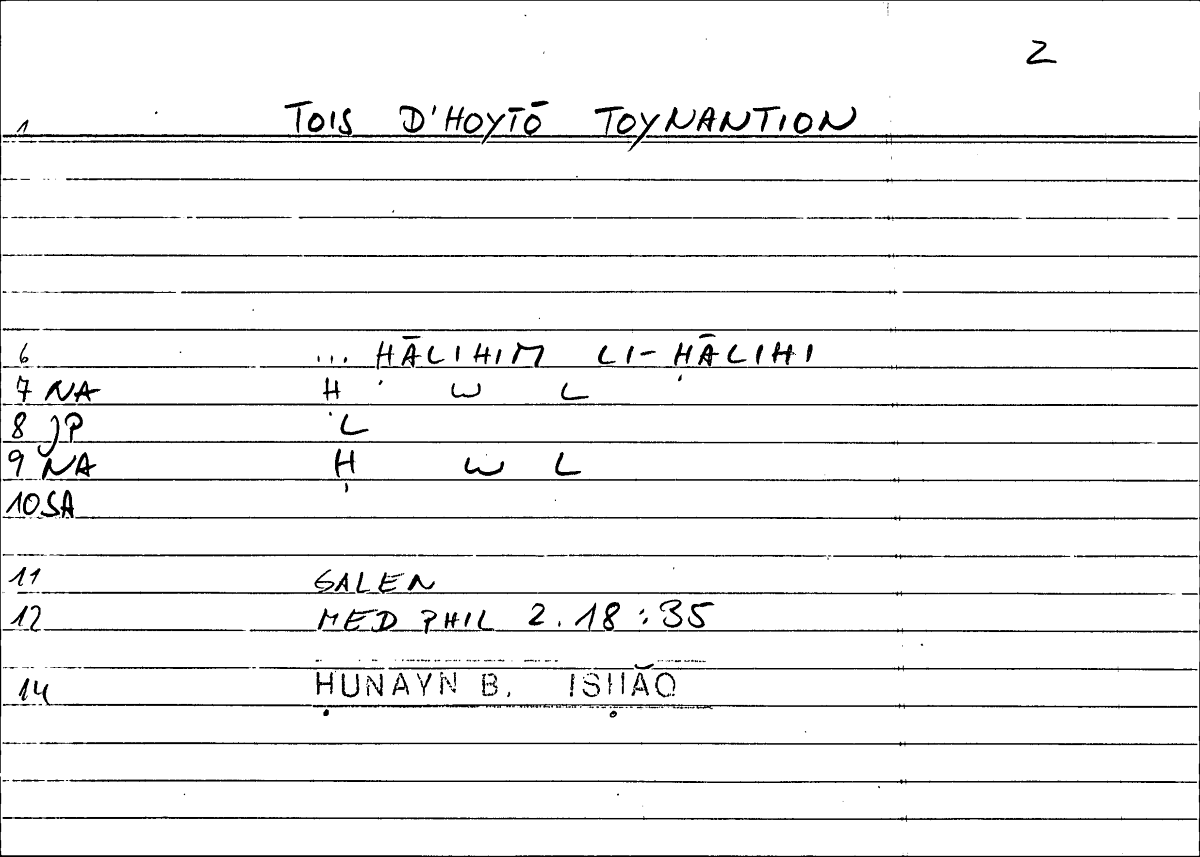 2
1 TOIS D'HOYTŌ TOYNANTION
6 ... ḤĀLIHIM LI-ḤĀLIHI
7 NA Ḥ W L
8 JP L
9 NA Ḥ W L
10 SA
11 GALEN
12 MED PHIL 2.18:35
14 ḤUNAYN B. ISḤĀQ